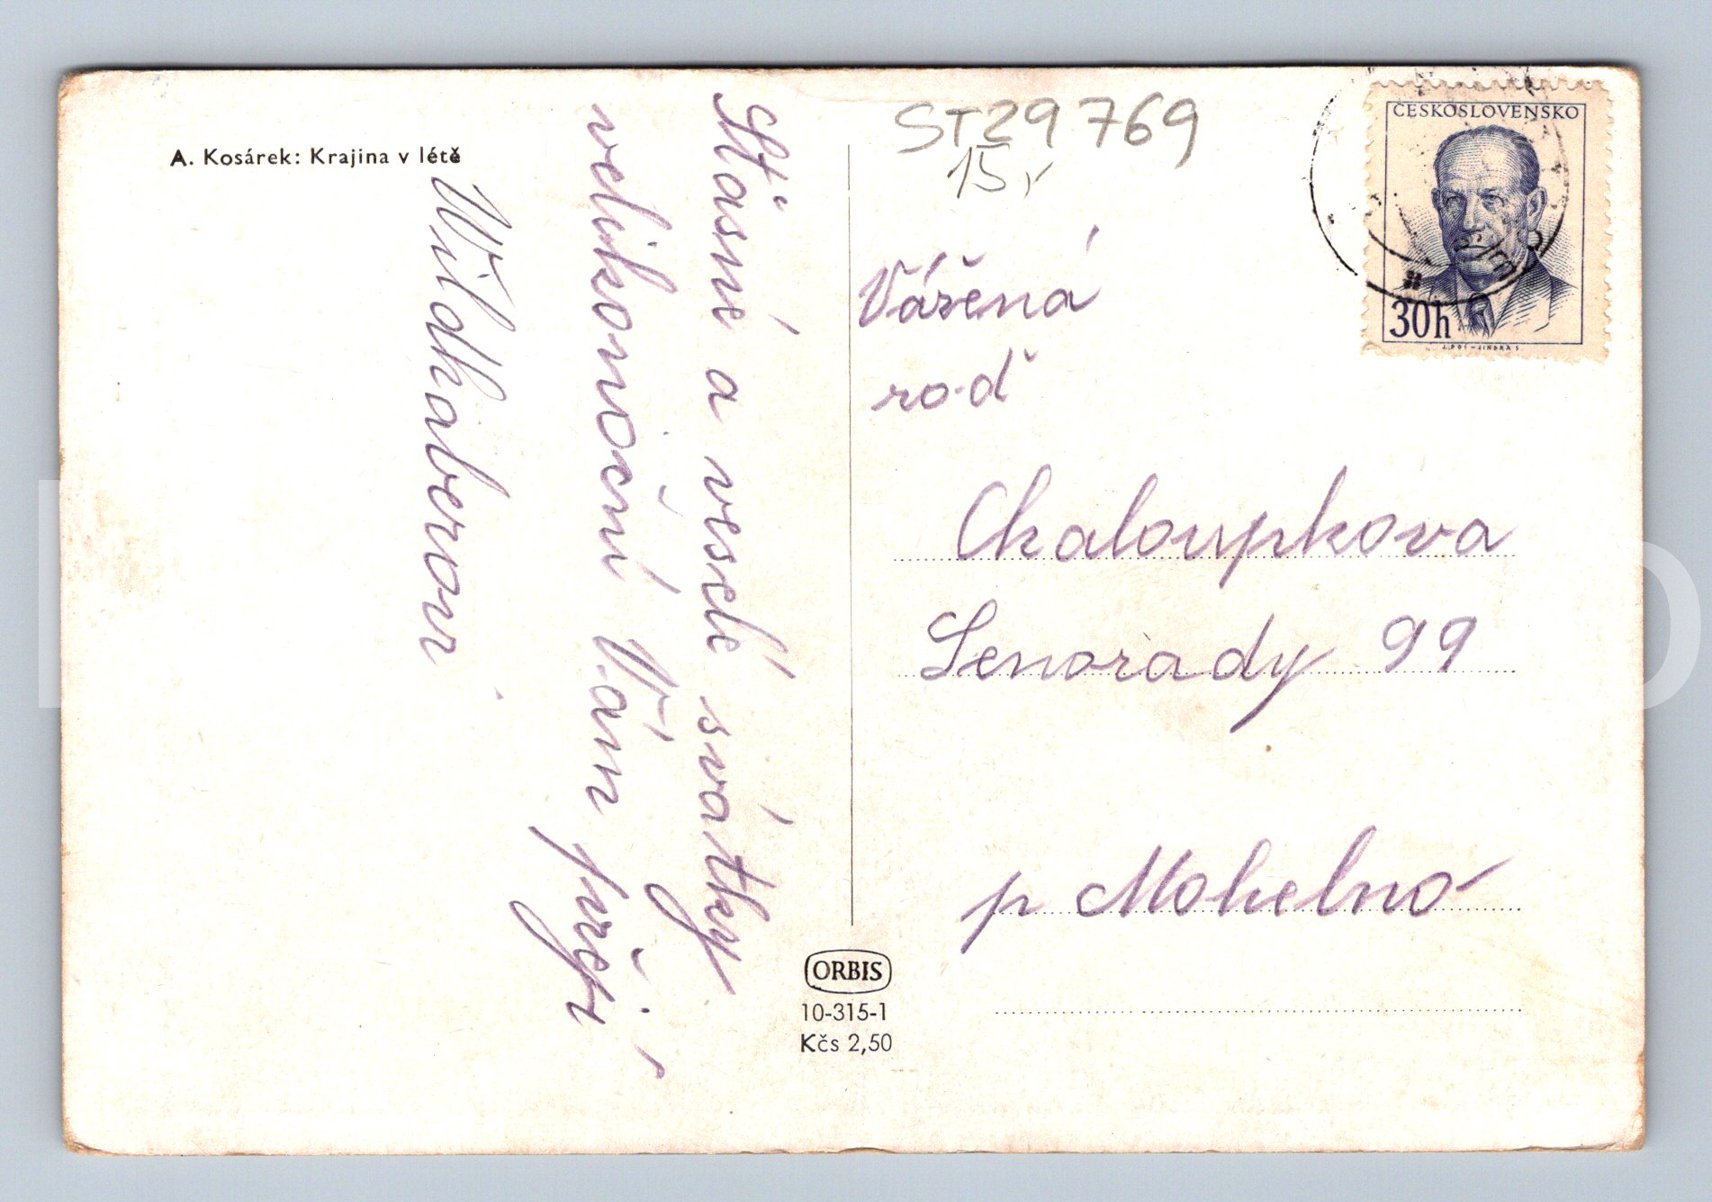 A. Kosárek: Krajina v létě
Štasné a veselé svátky
velikonoční Vám přeji
ST29769
15,-
ČESKOSLOVENSKO
30h
Vážená
rod
Chaloupkova
Senorady 99
p Mohelno
ORBIS
10-315-1
Kčs 2,50